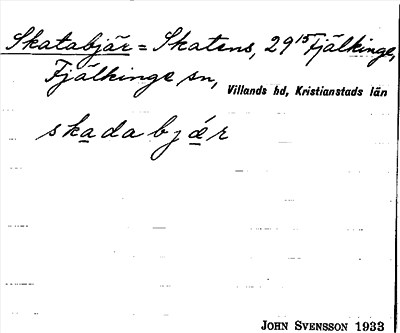 Skatabjär = Skatens, 29¹⁵ Fjälkinge,
Fjälkinge sn, Villands hd, Kristianstads län
skadabjǽr
JOHN SVENSSON 1933